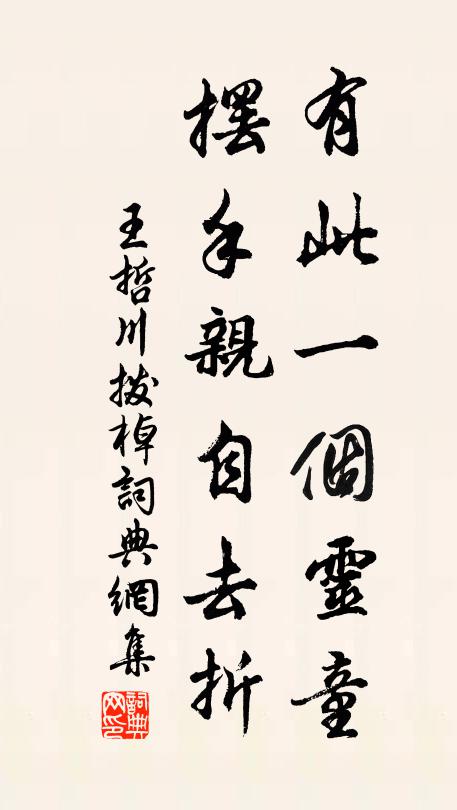 有此一個靈童
擺手親自去折
王哲川撥棹詞典網集
詞典網印